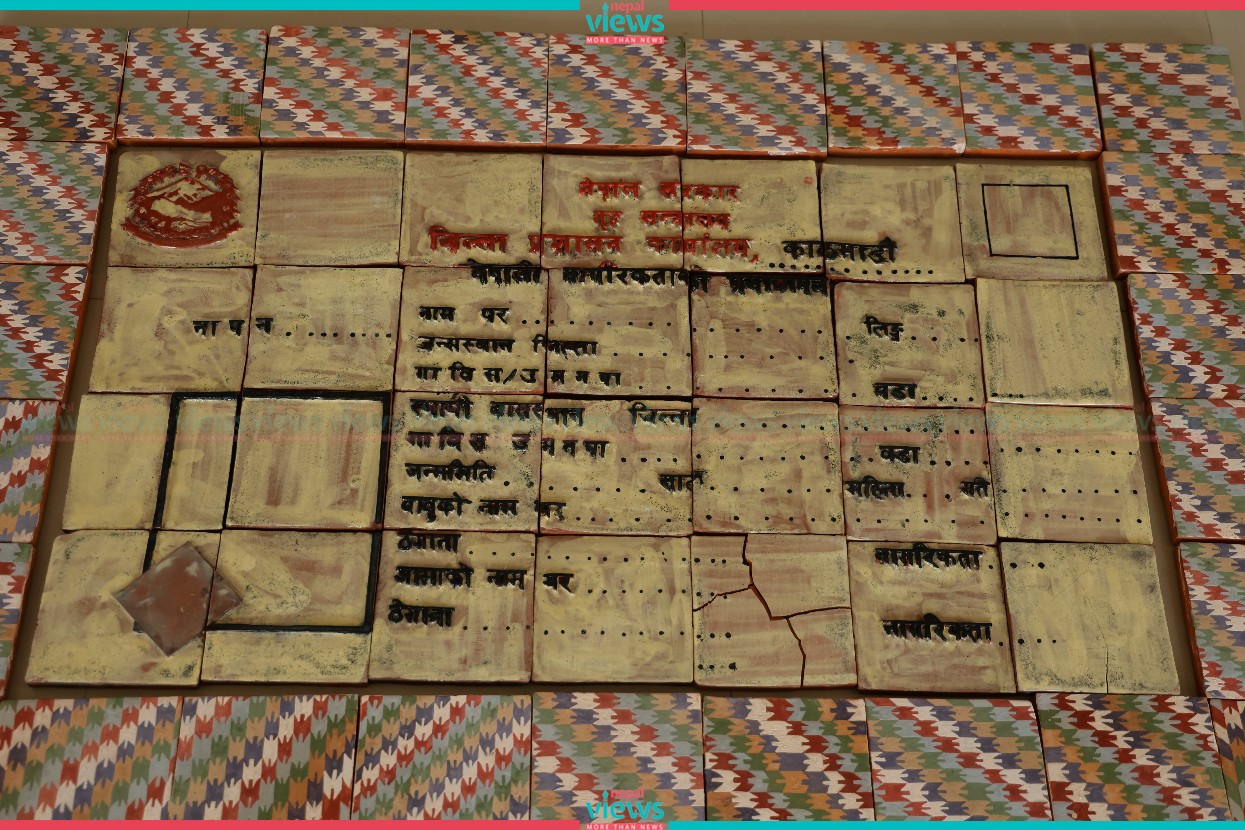 nepal
views
MORE THAN NEWS
नेपाल सरकार
गृह मन्त्रालय
जिल्ला प्रशासन कार्यालय, काठमाडौं
नेपाली नागरिकताको प्रमाणपत्र
ना प न
नाम थर लिङ्ग
जन्मस्थान जिल्ला
गा वि स/उ म न पा वडा
स्थायी बासस्थान जिल्ला
गा वि स उ म न पा वडा
जन्ममिति साल महिना गते
बाबुको नाम थर
ठेगाना नागरिकता
आमाको नाम थर
ठेगाना नागरिकता
nepal
views
MORE THAN NEWS